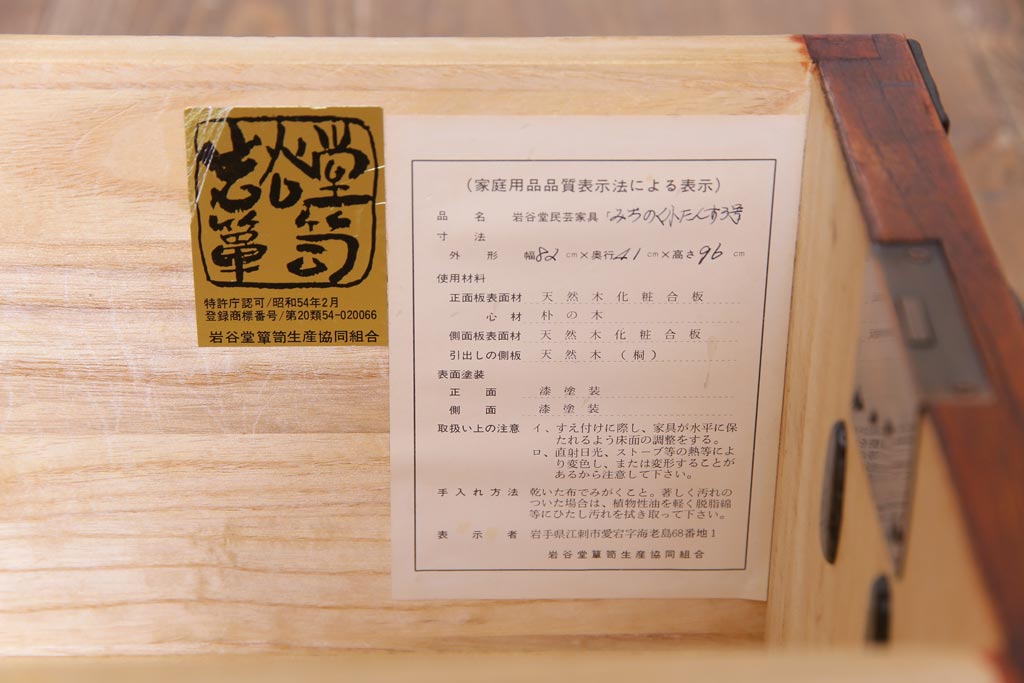 岩谷堂簞笥
特許庁認可/昭和54年2月
登録商標番号/第20類54-020066
岩谷堂簞笥生産協同組合
(家庭用品品質表示法による表示)
品名 岩谷堂民芸家具 みちのく小たんす3号
寸法
外形 幅82cm×奥行41cm×高さ96cm
使用材料
正面板表面材 天然木化粧合板
心材 朴の木
側面板表面材 天然木化粧合板
引出しの側板 天然木(桐)
表面塗装
正面 漆塗装
側面 漆塗装
取扱い上の注意 イ、すえ付けに際し、家具が水平に保
たれるよう床面の調整をする。
ロ、直射日光、ストーブ等の熱等によ
り変色し、または変形することが
あるから注意して下さい。
手入れ方法 乾いた布でみがくこと。著しく汚れの
ついた場合は、植物性油を軽く脱脂綿
等にひたし汚れを拭き取って下さい。
表示者 岩手県江刺市愛宕字海老島68番地1
岩谷堂簞笥生産協同組合